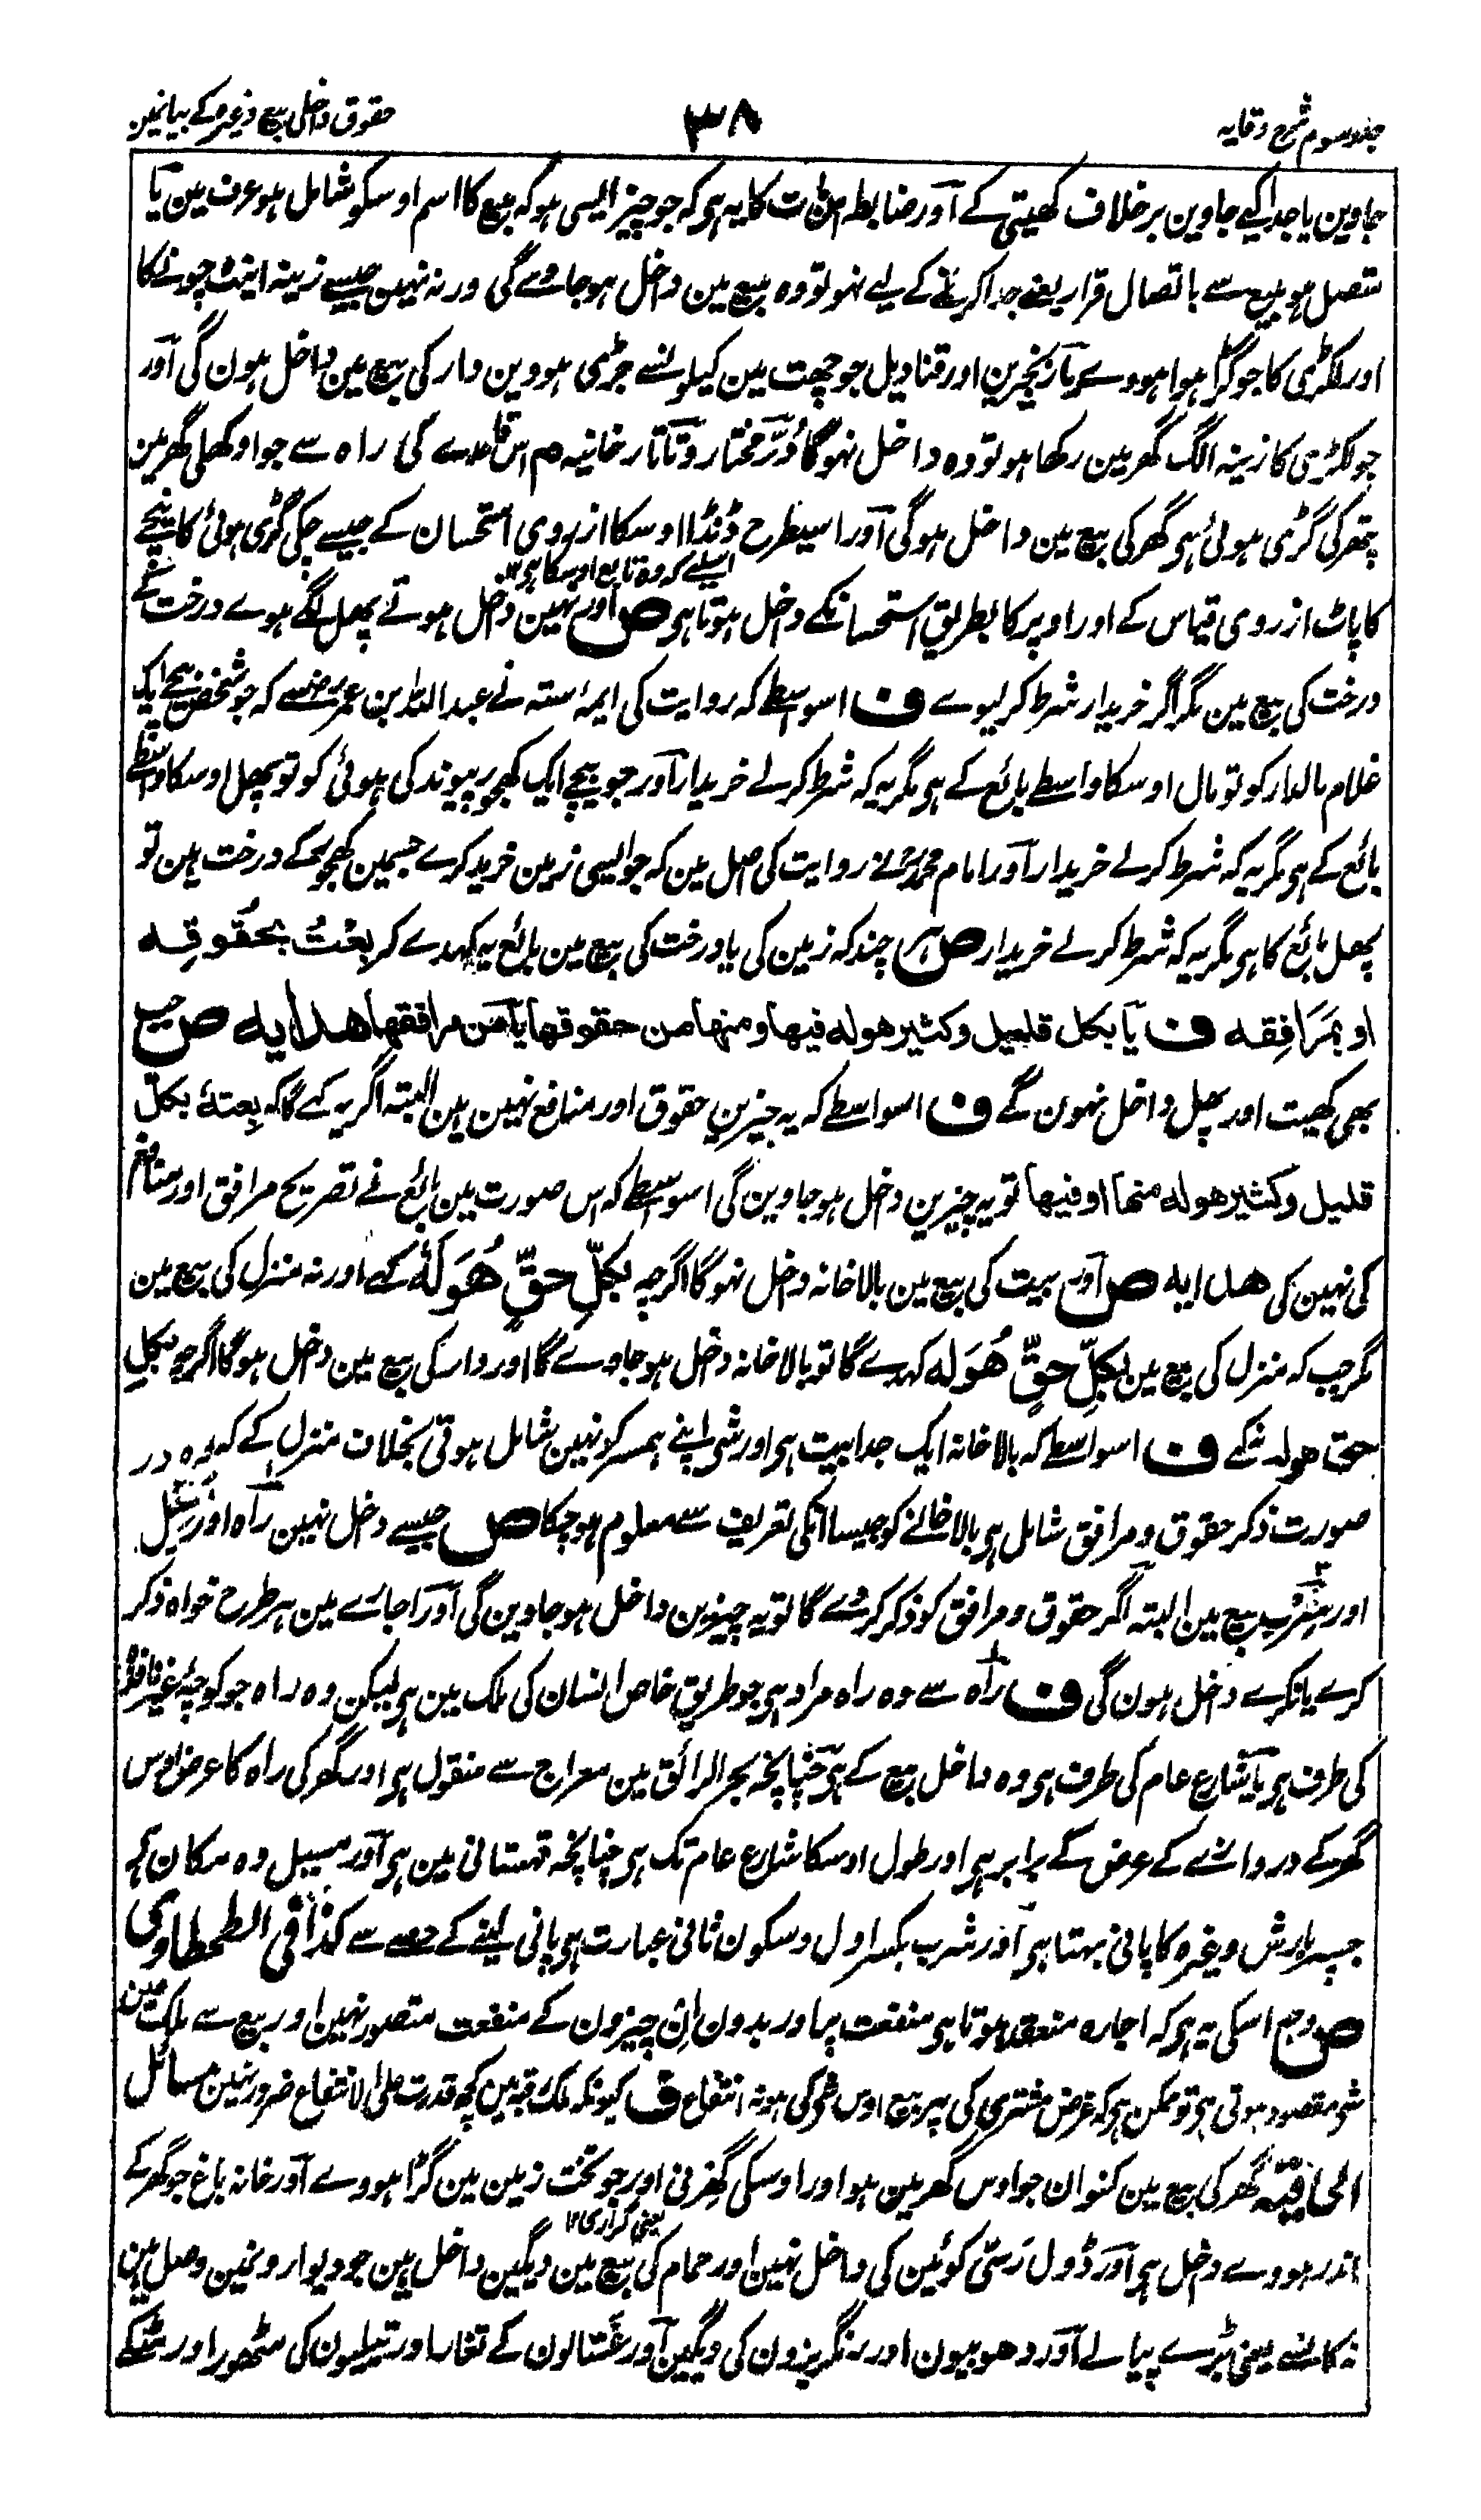 جلد سوم شرح وقایہ
۳۸
حقوق داخل بیع وغیرہ کے بیانمین
جاوین یا جدا کیے جاوین برخلاف کھیتی کے آور ضابطہ ان کا یہ ہی کہ جو چیز ایسی ہو کہ مبیع کا اسم اوسکو شامل ہو عرف مین یآ
متصل ہو مبیع سے باتصال قرار یعنے جدا کرنے کے لیے نہو تو وہ بیع مین داخل ہو جاوے گی ورنہ نہین جیسے زینہ اینٹ چونے کا
اور لکڑی کا جو گڑا ہوا ہووے یآ زنجیرین اور قنادیل جو چھت مین کیلونسے جڑی ہووین دار کی بیع مین داخل ہون گی آور
جو لکڑی کا زینہ الگ گھر مین رکھا ہو تو وہ داخل نہوگا دُرّ مختار و تآتار خانیہ م اس قاعدے کی راہ سے جو اوکھلی گھر مین
پتھر کی گڑی ہوئی ہی گھر کی بیع مین داخل ہوگی آور اسیطرح ڈنڈا اوسکا از روی استحسان کے جیسے چکی گڑی ہوئی کا نیچے
اسلیے کہ وہ تابع اوسکا ہی ۱۲
کا پاٹ از روی قیاس کے اور اوپر کا بطریق استحسانکے داخل ہوتا ہی ص اور نہین داخل ہوتے پھل لگے ہوے درخت کے
درخت کی بیع مین مگر اگر خریدار شرط کر لیوے ف اسواسطے کہ روایت کی ایمہ ستہ نے عبد اللہ بن عمر رضسے کہ جو شخص بیچے ایک
غلام مالدار کو تو مال اوسکا واسطے بائع کے ہی مگر یہ کہ شرط کرلے خریدار آور جو بیچے ایک کھجور پیوند کی ہوئی کو تو پھل اوسکا واسطے
بائع کے ہی مگر یہ کہ شرط کرلے خریدار آور امام محمدؒ نے روایت کی اصل مین کہ جو ایسی زمین خرید کرے جسمین کھجور کے درخت ہین تو
پھل بائع کا ہی مگر یہ کہ شرط کرلے خریدار ص ہر چند کہ زمین کی یا درخت کی بیع مین بائع یہ کہدے کہ بِعْتُ بحقُوقِہ
او بمَرَافِقہ ف یآ بکل قلیل وکثیر هو له فیها ومنها من حقوقها یآ من مرافقها هدایه ص جب
بھی کھیت اور پھل داخل نہون گے ف اسواسطے کہ یہ چیزین حقوق اور منافع نہین ہین البتہ اگر یہ کہے گا کہ بِعتہٗ بکل
قلیل وکثیر هو له منها او فیها تو یہ چیزین داخل ہو جاوین گی اسواسطے کہ اس صورت مین بائع نے تصریح مرافق اور منافع
کی نہین کی هدایه ص آور بیت کی بیع مین بالاخانہ داخل نہوگا اگرچہ بکلِّ حقٍّ هُوَ لَهٗ کہے اور نہ منزل کی بیع مین
مگر جب کہ منزل کی بیع مین بکلِّ حقٍّ هُوَ له کہدے گا تو بالاخانہ داخل ہو جاوے گا اور دار کی بیع مین داخل ہوگا اگرچہ بکلِ
حق هو له نہ کہے ف اسواسطے کہ بالاخانہ ایک جدا بیت ہی اور شی اپنے ہمسر کو نہین شامل ہوتی بخلاف منزل کے کہ وہ در
صورت ذکر حقوق و مرافق شامل ہی بالاخانے کو جیسا انکی تعریف سے معلوم ہو چکا ص جیسے داخل نہین رآہ اور مَسِیل
اور شِرْب بیع مین البتہ اگر حقوق و مرافق کو ذکر کردے گا تو یہ چیزین داخل ہو جاوین گی آور اجارے مین ہر طرح خواہ ذکر
کرے یا نکرے داخل ہون گی ف رآہ سے وہ راہ مراد ہی جو طریق خاص انسان کی ملک مین ہی لیکن وہ راہ جو کوچہٗ غیر نافذہ
کی طرف ہی یآ شارع عام کی طرف ہی وہ داخل بیع کے ہی چنانچہ بحر الرائق مین معراج سے منقول ہی اور گھر کی راہ کا عرض اوس
گھر کے دروازے کے عرض کے برابر ہی اور طول اوسکا شارع عام تک ہی چنانچہ قہستانی مین ہی آور مسیل وہ مکان ہی
جسپر بارش وغیرہ کا پانی بہتا ہی آور شرب بکسر اول و سکون ثانی عبارت ہی پانی لینے کے حصے سے کذا فی الطحطاوی
ص وجہ اسکی یہ ہی کہ اجارہ منعقد ہوتا ہی منفعت پر اور بدون ان چیزون کے منفعت متصور نہین اور بیع سے ملک عین
شی مقصود ہوتی ہی تو ممکن ہی کہ غرض مشتری کی پھر بیع اوس شی کی ہو نہ انتفاع ف کیونکہ ملک رقبہ مین کچھ قدرت علی الانتفاع ضرور نہین مسائل
الحاقیّہ گھر کی بیع مین کنوان جو اوس گھر مین ہو اور اوسکی گِھرنی اور جو تخت زمین مین گڑا ہووے آور خانہ باغ جو گھر کے
یعنی گراری ۱۲
اندر ہووے داخل ہی آور ڈول رسّی کوئین کی داخل نہین اور حمام کی بیع مین دیگین داخل ہین جو دیوارونمین وصل ہین
نہ کاسے یعنی بڑے پیالے آور دھوبیون اور رنگریزون کی دیگین آور غسّالون کے تغار اور تیلیون کی مٹھور اور مٹکے